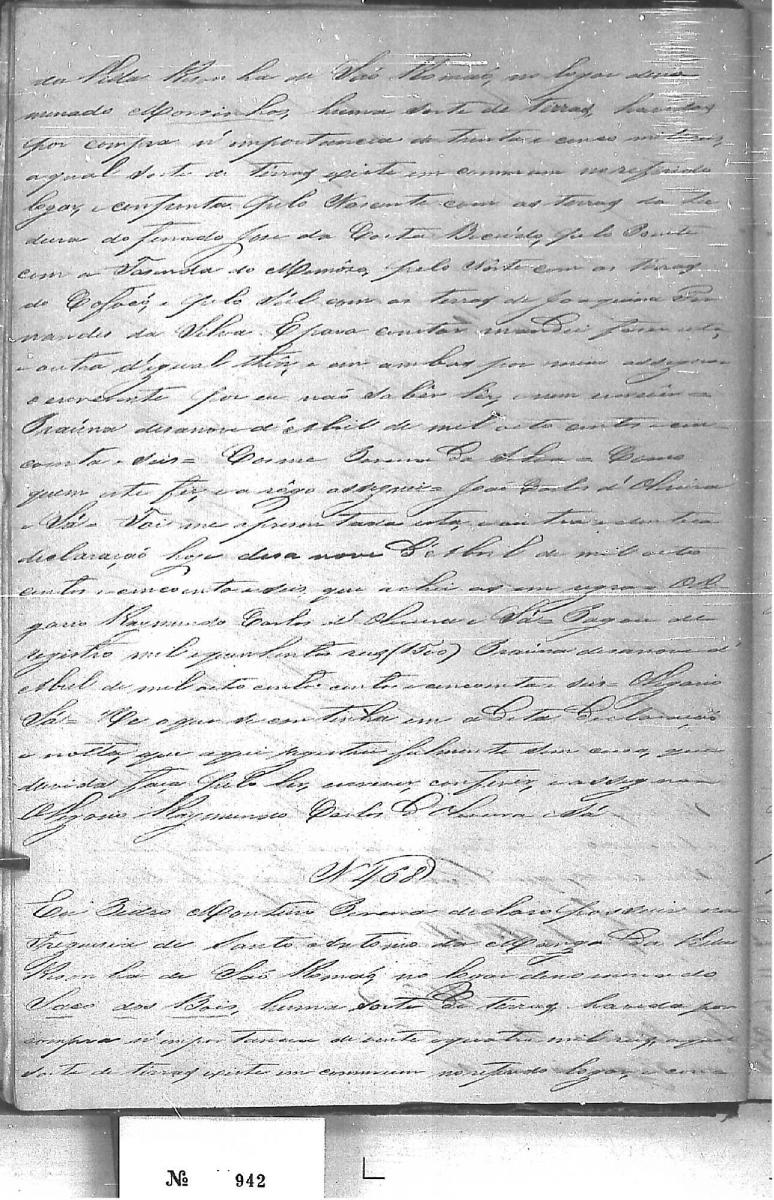 da Villa Risonha de São Romaõ, no logar deno
minado Morrinhos, huma sorte de terras, havidas
por compra n'importancia de trinta e cinco mil reis,
a qual sorte de terras existe em commum no referido
logar, e confronta pelo Nascente com as terras da
do finado José da Costa pelo Poente
com a Fasenda do pelo Nórte com as terras
do e pelo Sul com as terras de Joaquina Fer
nandes da Silva. E para constar mandei faser esta,
e outra d'igual thiôr, e em ambas por mim assignou
o escrevente por eu não saber lêr, e nem escrevêr =
Braúna desanove d'Abril de mil oito centos e cin
coenta e seis = Cosme Pereira da Silva = Como
quem este fez, e a rôgo assignei = João Carlos d'Oliveira
e Sá = Foi me apresentada esta, e outra identica
declaraçaõ hoje desanove d'Abril de mil oito
centos e cincoenta e seis, que achei as em regra = Ol
gario Raymundo Carlos d'Oliveira e Sá = Pagou de
registro mil e quinhentos reis (1500) Braúna desanove d'
Abril de mil oito cento centos e cincoenta e seis = Olegario
Sá = É o que se continha em a dita declaraçaõ
e notta, que aqui registrei fielmente sem cousa, que
duvida faça pelo ler, escrever, conferir, e assignar
Olegario Raymundo Carlos d'Oliveira Sá
N 468
Eu Pedro Monteiro Pereira declaro possuir na
Freguesia de Santo Antonio da Manga da Villa
Risonha de São Romaõ, no logar denominado
Saco dos Bois, huma sorte de terras, havida por
compra n'importancia de vinte e quatro mil reis, a qual
sorte de terras existe em commum no referido logar, e con
№ 942